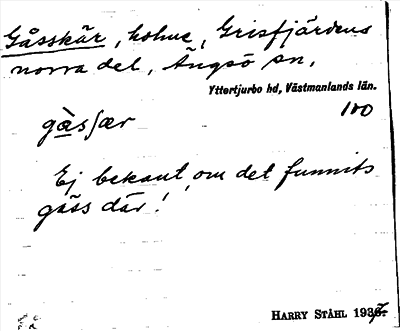 Gåsskär, holme, Grisfjärdens
norra del, Ängsö sn,
Yttertjurbo hd, Västmanlands län.
100
gàsʃær
Ej bekant om det funnits
gäss där!
HARRY STÅHL 1937.